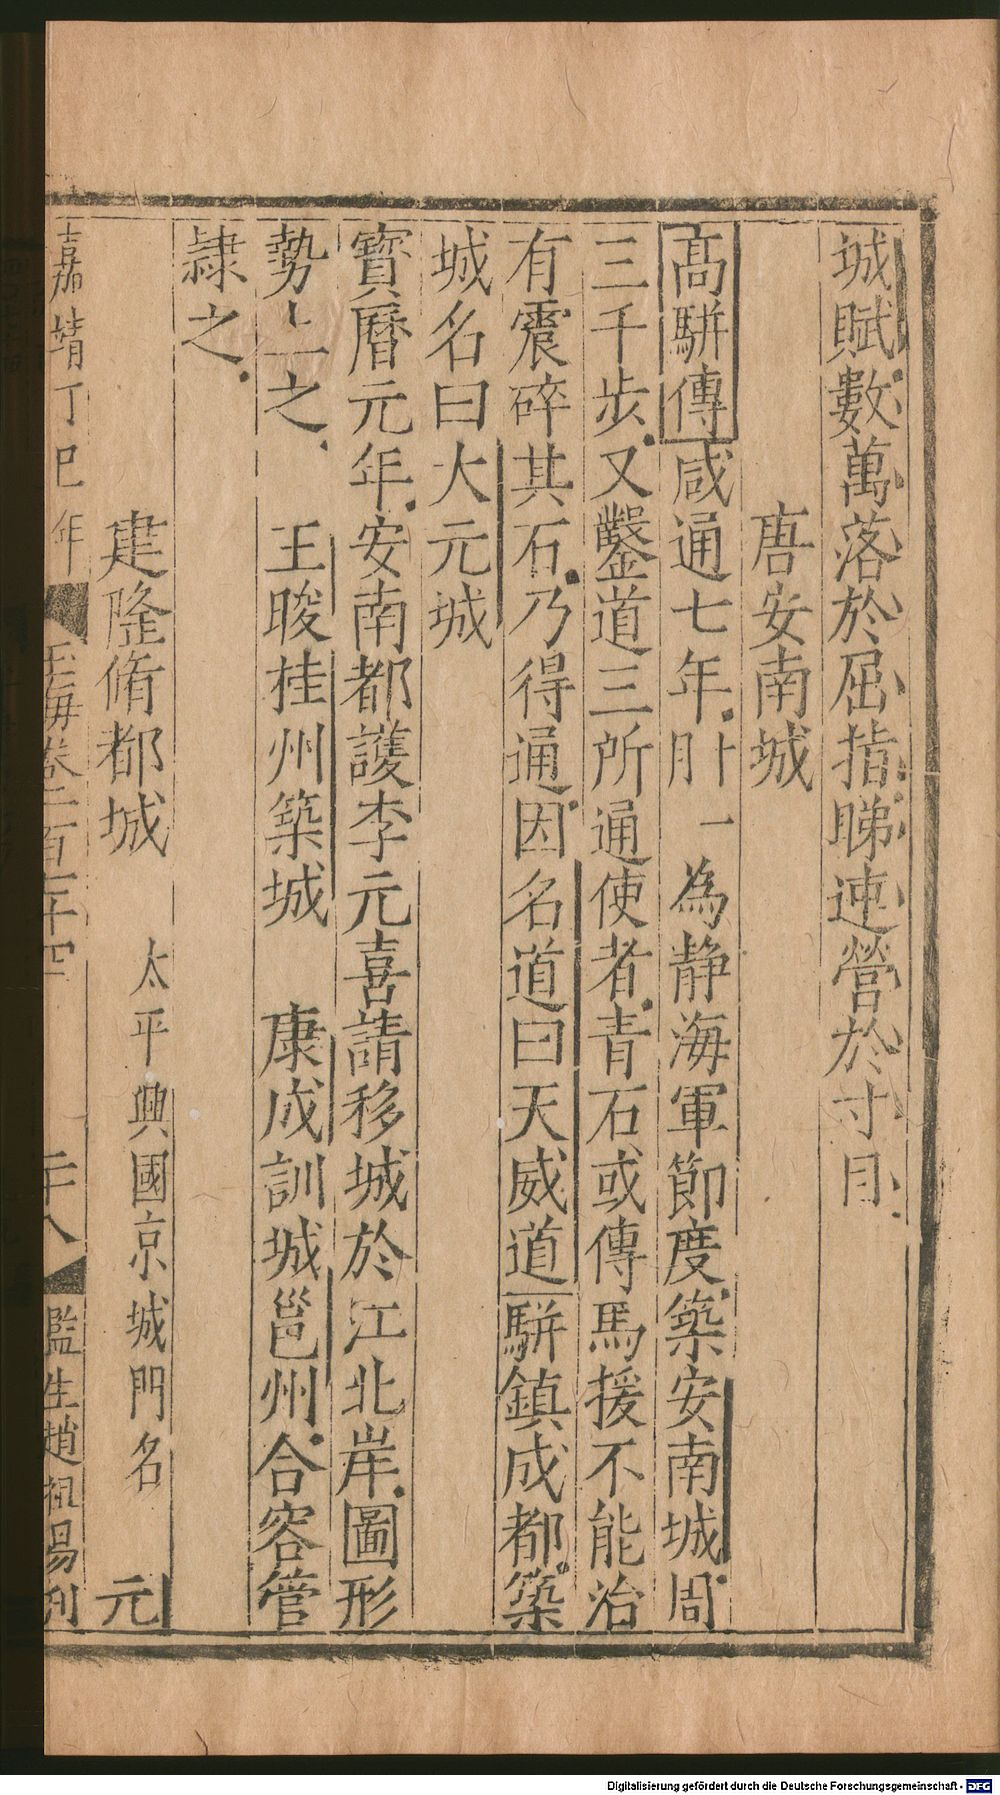 城賦數萬落於屈指睇連營於寸目
唐安南城
髙駢傳咸通七年月十一為静海軍節度築安南城周
三千步又鑿道三所通使者青石或傳馬援不能治
有震碎其石乃得通因名道曰天威道駢鎮成都築
城名曰大元城
寳曆元年安南都護李元喜請移城於江北岸圖形
勢上之 王晙桂州築城 康成訓城邕州合容管
隷之
建隆脩都城 太平興國京城門名 元
嘉靖丁巳年 玉海卷一百七十四 二十八 監生趙祖易刊
Digitalisierung gefördert durch die Deutsche Forschungsgemeinschaft - DFG